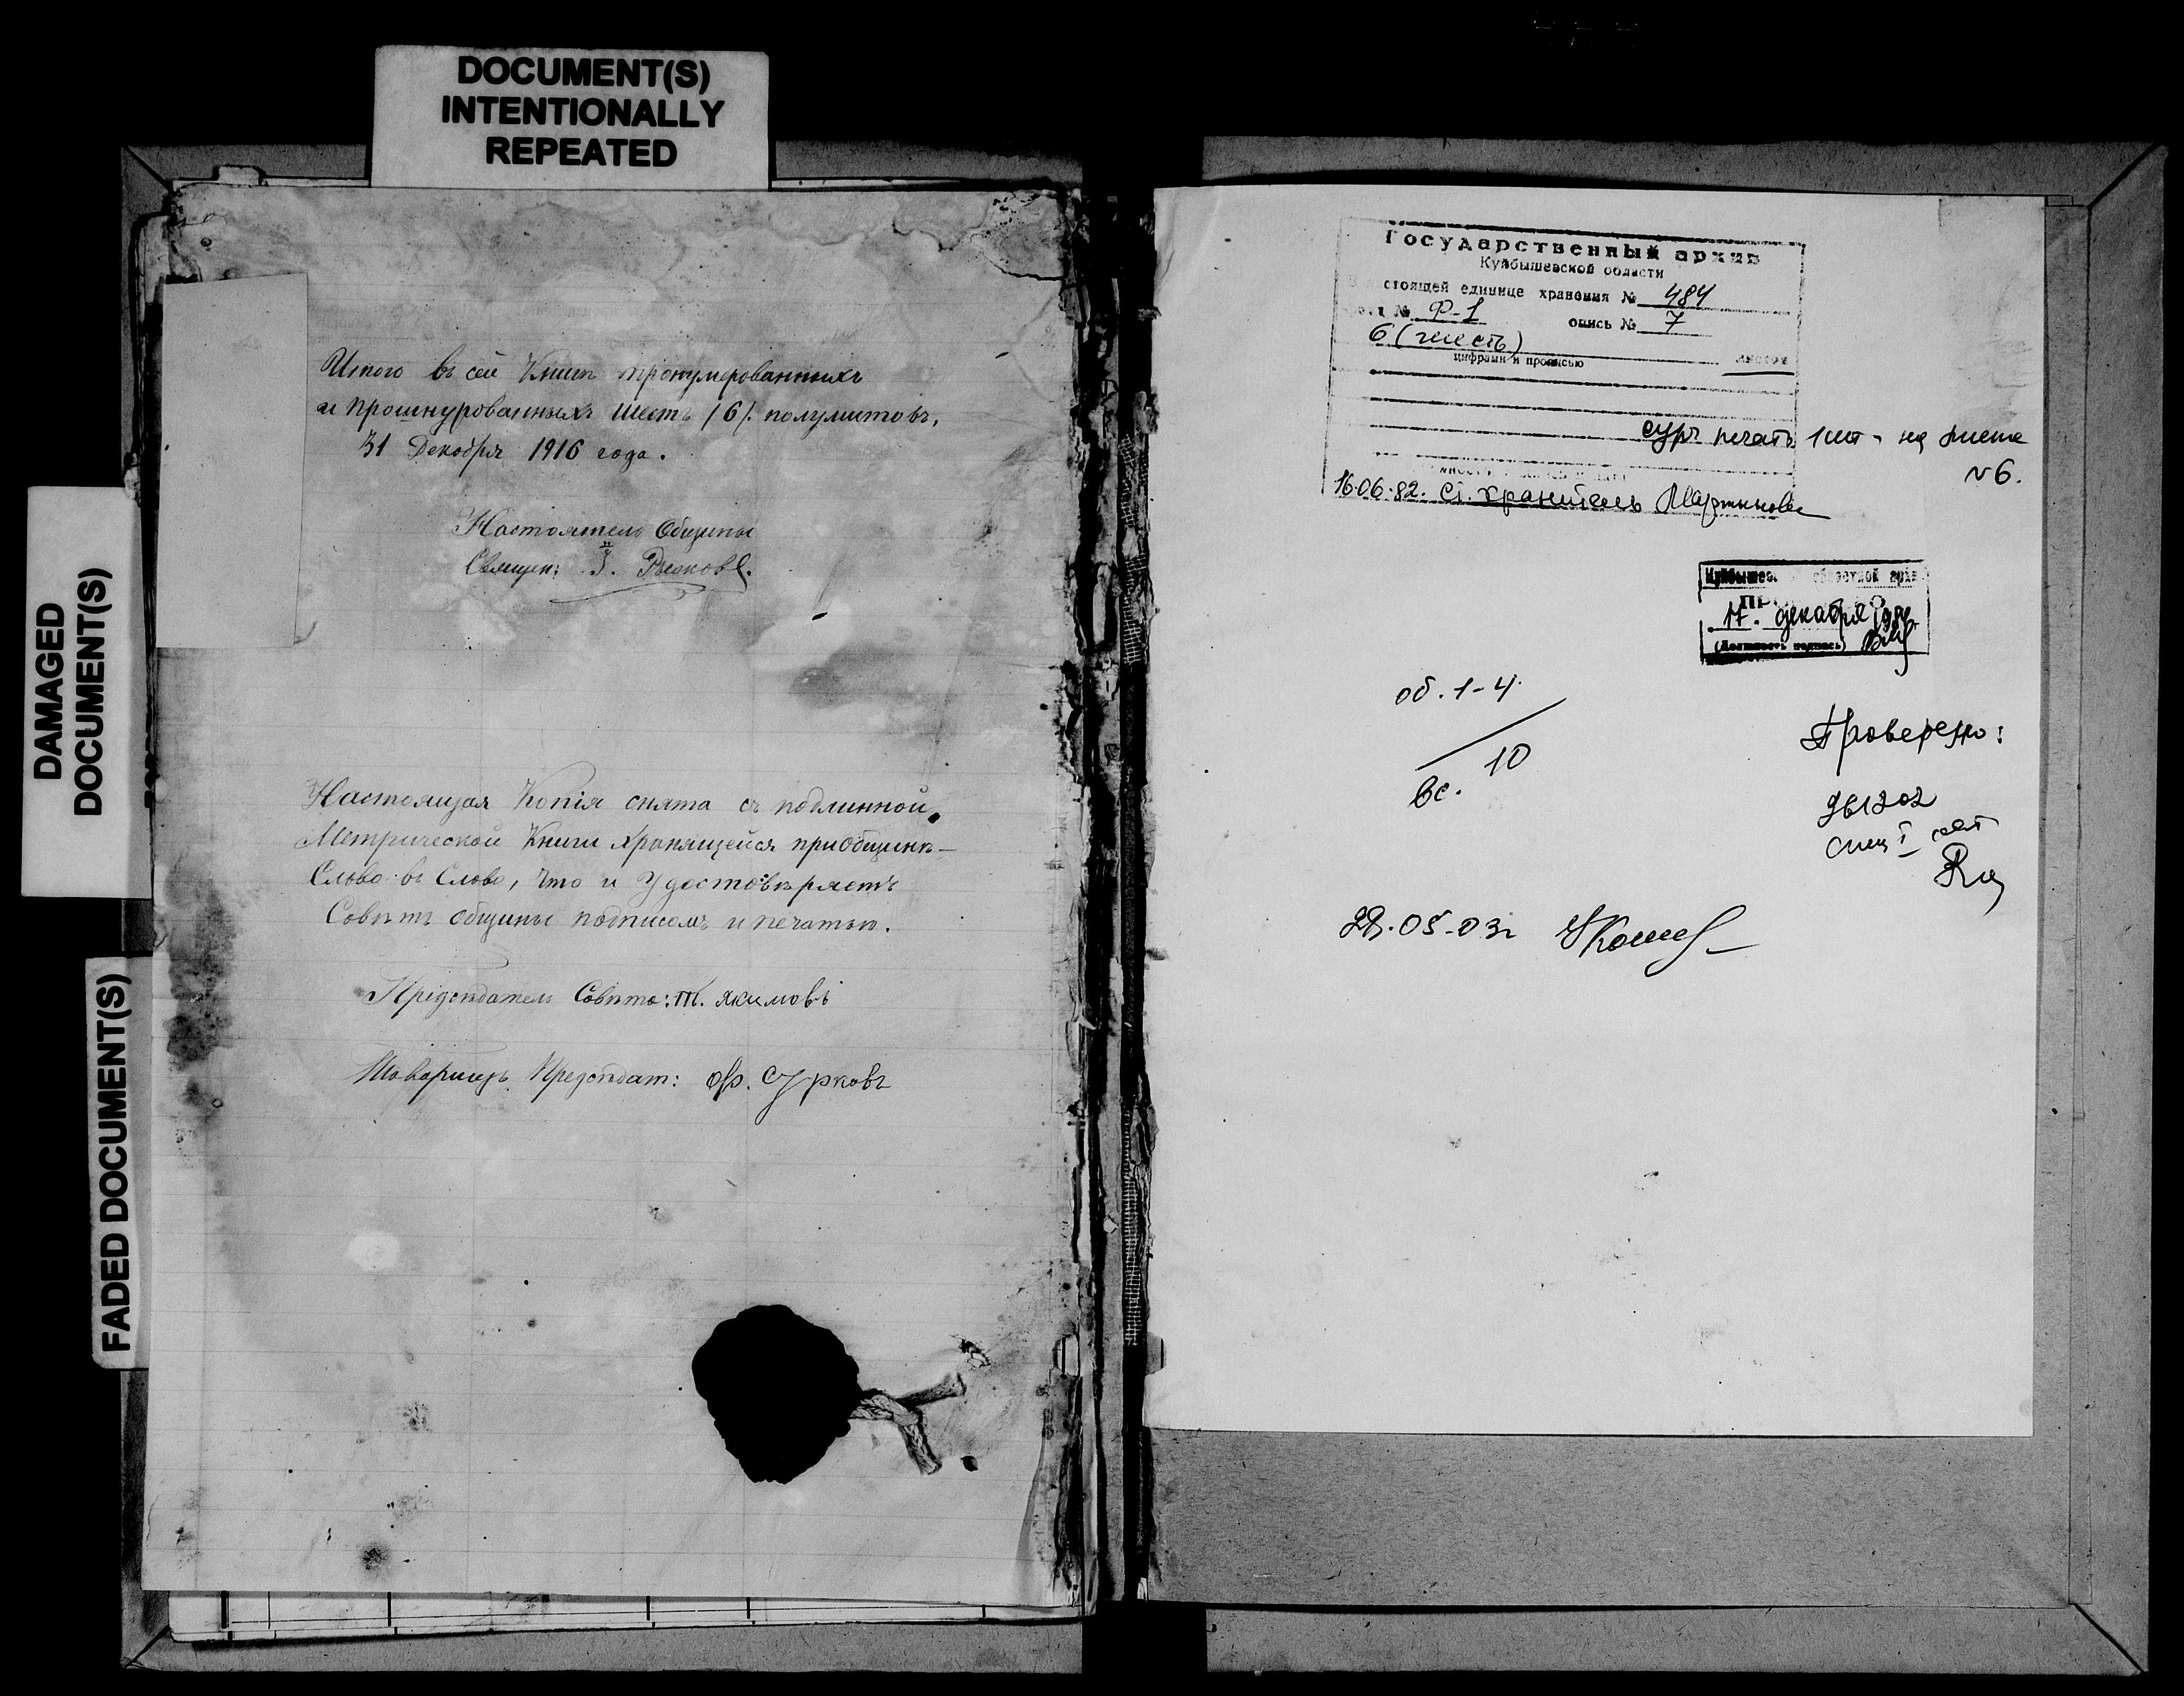 DOCUMENT(S)
INTENTIONALLY
REPEATED
DAMAGED
DOCUMENT(S)
FADED DOCUMENT(S)
Итого въ сей Книгѣ пронумерованныхъ
и прошнурованныхъ шесть /6/. полулистовъ,
31 Декабря 1916 года.
Настоятель Общины
Священ:
Настоящая Копія снята съ подлинной
Метрической Книги хранящейся при общинѣ –
Слово въ Слово, что и Удостовѣряетъ
Совѣтъ общины подписомъ и печатью.
Прідсѣдатель Совѣта: т. якимовъ
Товарищъ Предсѣдат: Сурковъ
Государственный архив
Куйбышевской области
В стоящей единице хранения № 484
№ Ф-1 опись № 7
6 (шесть) листов
цифрами и прописью
сург печать 1 шт - на листе
№6.
16.06.82. Ст. хранитель Мартынова
областной арх
17. декабря
(Должность подпись)
об. 1-4.
10
вс.
Проверено: